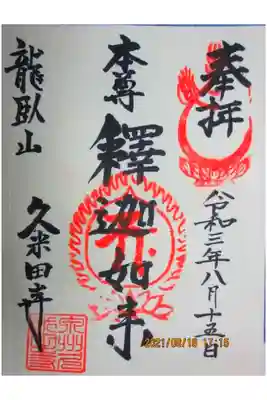 奉拝
令和三年八月十五日
本尊
釋迦如来
龍臥山
久米田寺
2021/08/16 17:15